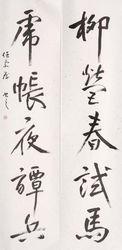 柳營春試馬
虎帳夜譚兵